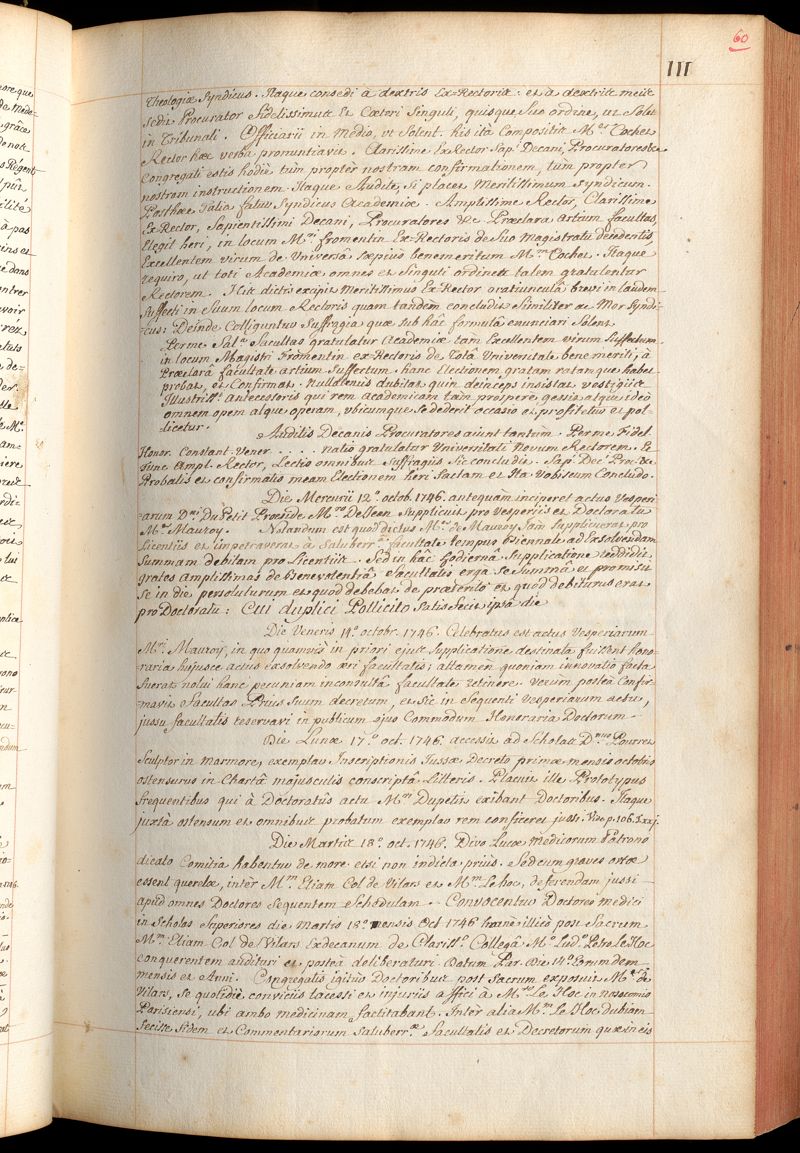 60
III
Theologiæ Syndicus. Itaque consedi à dextris Ex-Rectoris. et à dextris meis
sedit Procurator Fidelissimus Et Cœteri Singuli, quisque Suo ordine, ut Solet
in Tribunali. Officiarii in Medio, ut Solent. his ità Compositis M.us Cochet
Rector hæc verba pronuntiavit. Clarissime Ex Rector Sap.i Decani, Procuratores &c
Congregati estis hodie tùm proptèr nostram confirmationem, tùm propter
nostram instructionem. Itaque Audite, si placet Meritissimum Syndicum.
Posthæc Talia fatur Syndicus Academiæ. Amplissime Rector, Clarissime
Ex-Rector, Sapientissimi Decani, Procuratores &c Præclara artium facultas
Elegit heri, in locum M.ri fromentin Ex-Rectoris de Suo Magistratu decedentis,
Excellentem virum de Universâ sæpius benemeritum M.rum Cochet. Itaque
requiro, ut toti Academiæ omnes et Singuli ordines talem gratulentur
Rectorem. His dictis excipit Meritissimus Ex-Rector oratiunculâ brevi in laudem
Suffecti in Suum locum Rectoris quam tandem concludit Similiter ac Mox Syndi-
cus: Deinde Colliguntur Suffragia quæ sub hâc formulâ enunciari Solent
Per me Sal.is facultas gratulatur Academiæ tam Excellentem virum Suffectum
in locum Magistri Fromentin ex-Rectoris de Totâ Universitate bene meriti, à
Præclarâ facultate artium Suffectum. hanc Electionem gratam ratamque habet
probat, et Confirmat. Nullatenùs dubitat quin deinceps insistat vestigiis
Illustriss.i antecessoris qui rem academicam tam prospere gessit atque ideò
omnem opem atque operam, ubicumque Se dederit occasio et profitetur et pol-
licetur.
Auditis Decanis Procuratores aiunt tantùm. Per me Fidel
Honor. Constant. Vener . . . . . natio gratulatur Universitati Novum Rectorem. Et
tunc Ampl. Rector, Lectis omnibus Suffragiis Sic concludit. Sap.i Dec.i Proc.es &c
Probatis et confirmatis meam Electionem heri factam et Ita Vobiscum Concludo.
Die Mercurii 12.a octob. 1746. antequam inciperet actus Vesperi-
arum D.ni Du Petit Præside M.ro De Jean Supplicuit pro Vesperiis et Doctoratu
M.r Mauroy. Notandum est quod dictus M.r de Mauroy Jam Supplicuerat pro
Licentiis et impetraverat à Saluberr.â facultate tempus Biennale ad Exsolvendam
Summam debitam pro Licentiis. Sed in hâc hodiernâ Supplicatione reddidit
grates amplissimas de Benevolentiâ Facultatis erga se Summâ et promisit
Se in die persoluturum et quod debebat de præterito et quod debiturus erat
pro Doctoratu: Cui duplici Pollicito Satis fecit ipsâ die
Die Veneris 14.a octobr. 1746. Celebratus est actus Vesperiarum
M.ri Mauroy, in quo quamvis in priori ejus Supplicatione destinata fuissent hono-
raria hujusce actus exsolvendo æri facultatis; attamen quoniam innovatio facta
fuerat nolui hanc pecuniam inconsultâ facultate retinere. Verùm posteà Confir-
mavit Facultas Priùs Suum decretum, et Sic in Sequenti Vesperiarum actu,
jussu facultatis reservavi in publicum ejus Commodum Honoraria Doctorum -
Die Lunæ 17.a oct. 1746. accessit ad Scholas D.nus Pourret
Sculptor in Marmore, exemplar Inscriptionis Jussæ Decreto primæ mensis octobris
ostensurus in Chartâ majusculis conscriptâ Litteris. Placuit ille Prototypus
frequentibus qui à Doctoratûs actu M.ri Dupetit exibant Doctoribus. Itaque
juxtà ostensum et omnibus probatum exemplar rem conficeret jussi. Vide p. 106.
Die Martis 18.a oct. 1746. Divo Lucæ Medicorum Patrono
dicato Comitia habentur de more etsi non indicta priùs. Sed cum graves ortæ
essent querelæ, intèr M.rum Eliam Col de Vilars et M.rum Le hoc, deferendam jussi
apud omnes Doctores Sequentem Schedulam - Convocentur Doctores medici
in Scholas Superiores die Martis 18.a mensis Oct 1746 illicò post Sacrum
M.rum Eliam Col de Vilars Exdecanum de Clariss.o Collegâ M.ro Lud.co Petro Le Hoc
conquerentem audituri et posteà deliberaturi Datum Par. Die 14.a ejusdem
mensis et Anni. Congregatis igitur Doctoribus post Sacrum exposuit M.er de
Vilars, se quotidiè conviciis lacessi et injuriis affici à M.ro Le Hoc in nosocomio
Parisiensi, ubi ambo medicinam factitabant. Inter alia M.rum Le Hoc dubiam
fecisse fidem et Commentariorum Saluberr.æ Facultatis et Decretorum quæ in eis